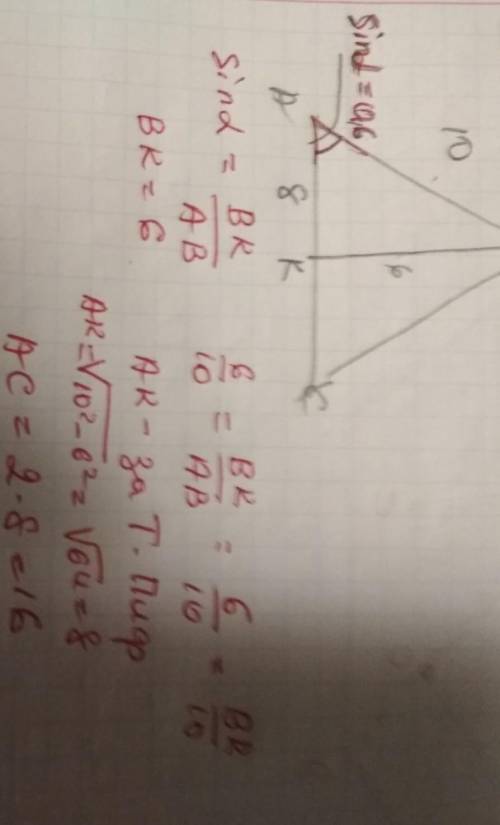 sinα = 0,6
10
A
8
6
K
C
sinα = BK/AB
6/10 = BK/AB = 6/10 = BK/10
BK = 6
AK - за Т. Піф
AK = √10² - 6² = √64 = 8
AC = 2 · 8 = 16